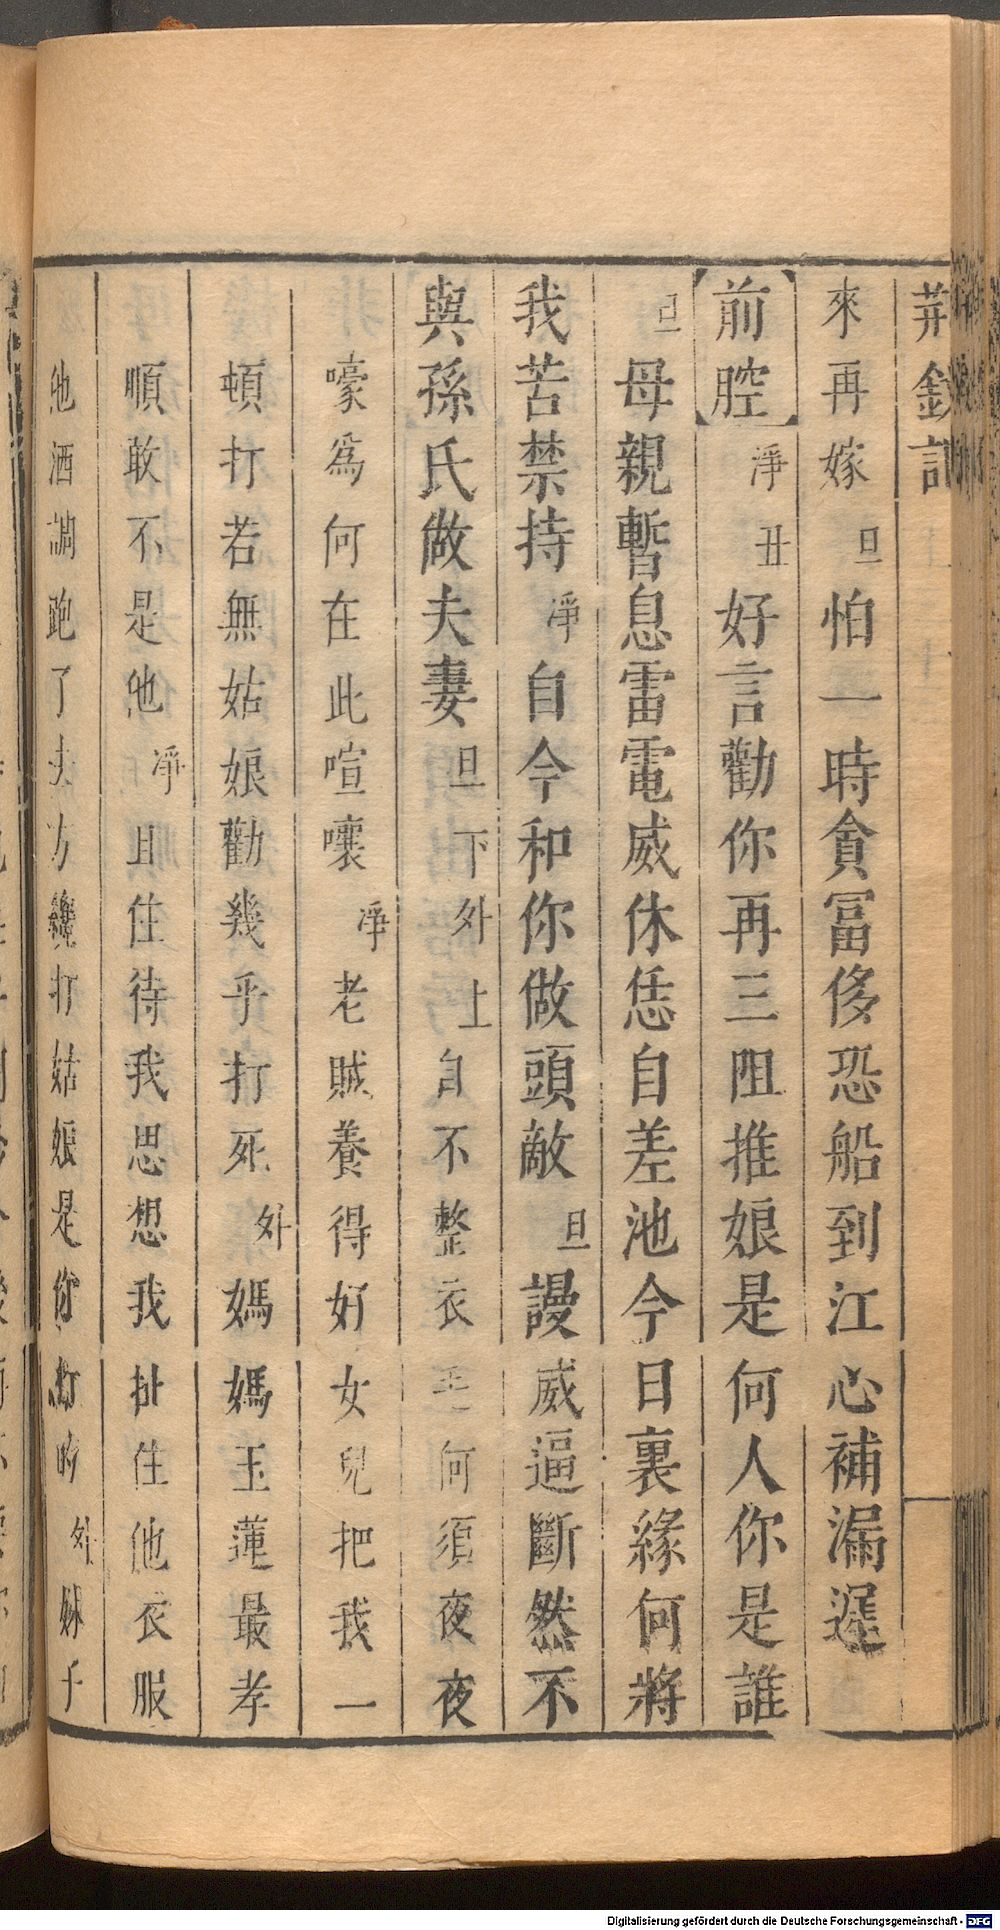 荆釵記
來再嫁旦怕一時貪冨侈恐船到江心補漏遲
【前腔】淨丑好言勸你再三阻推娘是何人你是誰
旦母親暫息雷電威休恁自差池今日裏緣何將
我苦禁持淨自今和你做頭敵旦謾威逼斷然不
與孫氏做夫妻旦下外上自不整衣何須夜夜
嚎爲何在此喧嚷淨老賊養得好女兒把我一
頓打若無姑娘勸幾乎打死外媽媽玉蓮最孝
順敢不是他淨且住待我思想我扯住他衣服
他洒調跑了去方纔打姑娘是你打的外妹子
Digitalisierung gefördert durch die Deutsche Forschungsgemeinschaft - DFG